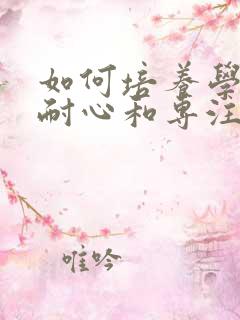 如何培养學
耐心和専注
唯吟